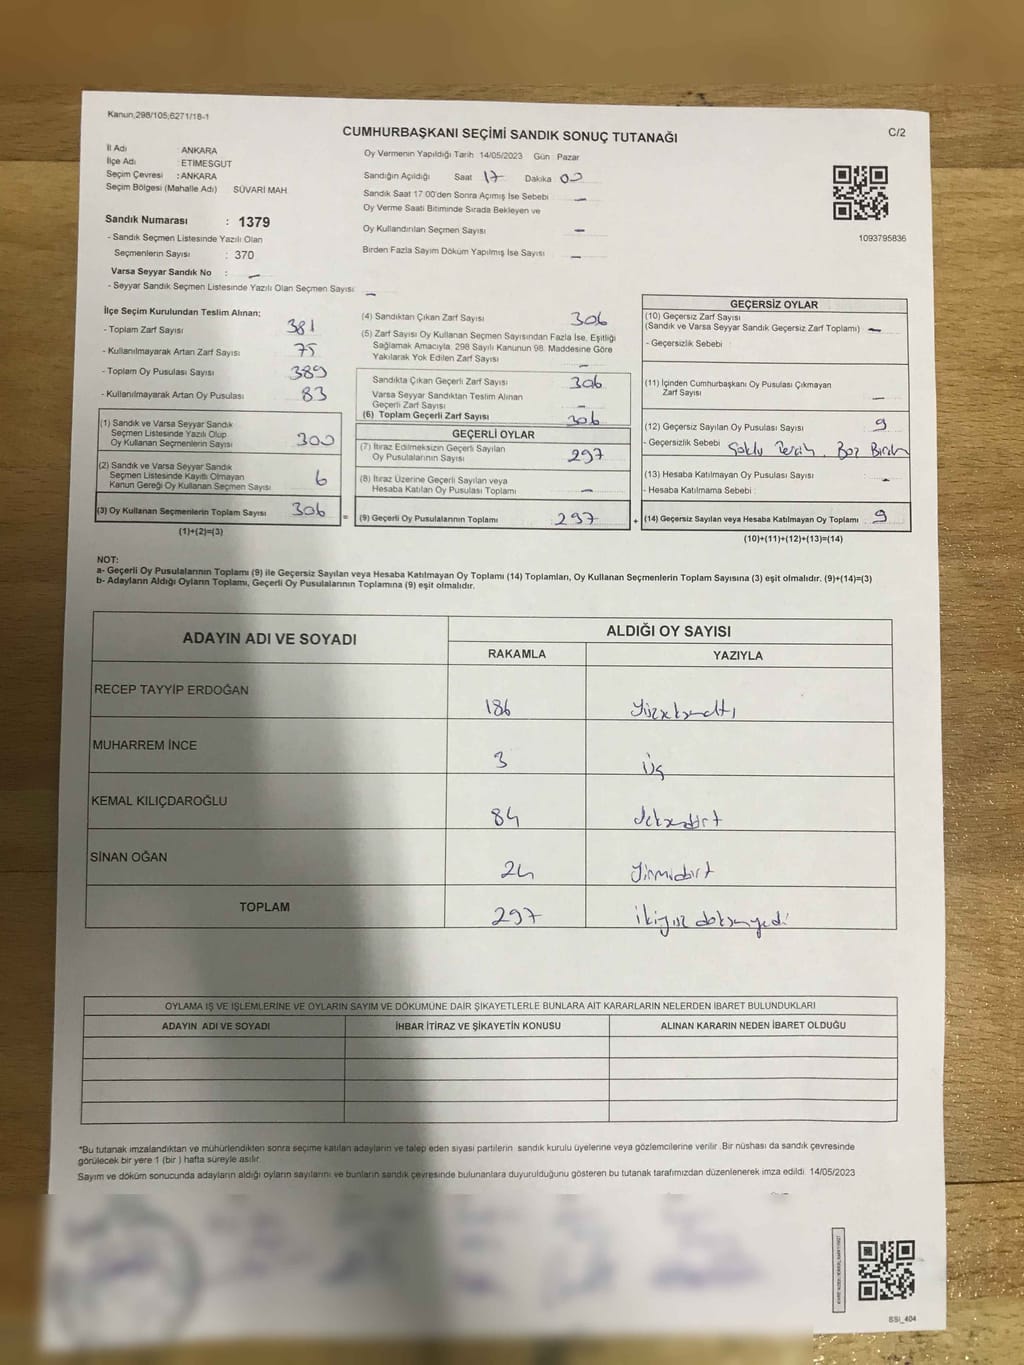 Kanun,298/105;6271/18-1
CUMHURBAŞKANI SEÇİMİ SANDIK SONUÇ TUTANAĞI
C/2
İl Adı : ANKARA
İlçe Adı : ETİMESGUT
Seçim Çevresi : ANKARA
Seçim Bölgesi (Mahalle Adı) SÜVARİ MAH.
Oy Vermenin Yapıldığı Tarih 14/05/2023 Gün : Pazar
Sandığın Açıldığı Saat 17 Dakika 00
Sandık Saat 17:00'den Sonra Açımış İse Sebebi —
Oy Verme Saati Bitiminde Sırada Bekleyen ve
Oy Kullandırılan Seçmen Sayısı —
Birden Fazla Sayım Döküm Yapılmış İse Sayısı —
1093795836
Sandık Numarası : 1379
- Sandık Seçmen Listesinde Yazılı Olan
Seçmenlerin Sayısı : 370
Varsa Seyyar Sandık No : —
- Seyyar Sandık Seçmen Listesinde Yazılı Olan Seçmen Sayısı —
İlçe Seçim Kurulundan Teslim Alınan;
- Toplam Zarf Sayısı 381
- Kullanılmayarak Artan Zarf Sayısı 75
- Toplam Oy Pusulası Sayısı 389
- Kullanılmayarak Artan Oy Pusulası 83
(1) Sandık ve Varsa Seyyar Sandık
Seçmen Listesinde Yazılı Olup
Oy Kullanan Seçmenlerin Sayısı 300
(2) Sandık ve Varsa Seyyar Sandık
Seçmen Listesinde Kayıtlı Olmayan
Kanun Gereği Oy Kullanan Seçmen Sayısı 6
(3) Oy Kullanan Seçmenlerin Toplam Sayısı 306
(1)+(2)=(3)
(4) Sandıktan Çıkan Zarf Sayısı 306
(5) Zarf Sayısı Oy Kullanan Seçmen Sayısından Fazla İse, Eşitliği
Sağlamak Amacıyla, 298 Sayılı Kanunun 98. Maddesine Göre
Yakılarak Yok Edilen Zarf Sayısı —
Sandıkta Çıkan Geçerli Zarf Sayısı 306
Varsa Seyyar Sandıktan Teslim Alınan
Geçerli Zarf Sayısı —
(6) Toplam Geçerli Zarf Sayısı 306
GEÇERLİ OYLAR
(7) İtiraz Edilmeksizin Geçerli Sayılan
Oy Pusulalarının Sayısı 297
(8) İtiraz Üzerine Geçerli Sayılan veya
Hesaba Katılan Oy Pusulası Toplamı —
= (9) Geçerli Oy Pusulalarının Toplamı 297 +
GEÇERSİZ OYLAR
(10) Geçersiz Zarf Sayısı
(Sandık ve Varsa Seyyar Sandık Geçersiz Zarf Toplamı) —
- Geçersizlik Sebebi :
(11) İçinden Cumhurbaşkanı Oy Pusulası Çıkmayan
Zarf Sayısı —
(12) Geçersiz Sayılan Oy Pusulası Sayısı 9
- Geçersizlik Sebebi
(13) Hesaba Katılmayan Oy Pusulası Sayısı —
- Hesaba Katılmama Sebebi :
(14) Geçersiz Sayılan veya Hesaba Katılmayan Oy Toplamı 9
(10)+(11)+(12)+(13)=(14)
NOT:
a- Geçerli Oy Pusulalarının Toplamı (9) ile Geçersiz Sayılan veya Hesaba Katılmayan Oy Toplamı (14) Toplamları, Oy Kullanan Seçmenlerin Toplam Sayısına (3) eşit olmalıdır. (9)+(14)=(3)
b- Adayların Aldığı Oyların Toplamı, Geçerli Oy Pusulalarının Toplamına (9) eşit olmalıdır.
ADAYIN ADI VE SOYADI
ALDIĞI OY SAYISI
RAKAMLA YAZIYLA
RECEP TAYYİP ERDOĞAN 186 Yüzseksenaltı
MUHARREM İNCE 3 Üç
KEMAL KILIÇDAROĞLU 84 Seksendört
SİNAN OĞAN 24 Yirmidört
TOPLAM 297 ikiyüz doksanyedi
OYLAMA İŞ VE İŞLEMLERİNE VE OYLARIN SAYIM VE DÖKÜMÜNE DAİR ŞİKAYETLERLE BUNLARA AİT KARARLARIN NELERDEN İBARET BULUNDUKLARI
ADAYIN ADI VE SOYADI İHBAR İTİRAZ VE ŞİKAYETİN KONUSU ALINAN KARARIN NEDEN İBARET OLDUĞU
*Bu tutanak imzalandıktan ve mühürlendikten sonra seçime katılan adayların ve talep eden siyasi partilerin sandık kurulu üyelerine veya gözlemcilerine verilir .Bir nüshası da sandık çevresinde
görülecek bir yere 1 (bir ) hafta süreyle asılır.
Sayım ve döküm sonucunda adayların aldığı oyların sayılarını ve bunların sandık çevresinde bulunanlara duyurulduğunu gösteren bu tutanak tarafımızdan düzenlenerek imza edildi. 14/05/2023
BSI_404